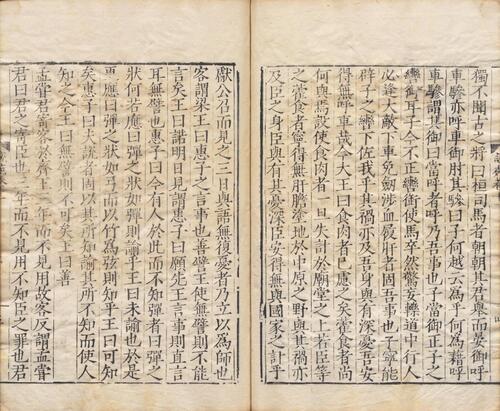 獨不聞古之將曰桓司馬者朝朝其君舉而晏御呼
車驂亦呼車御肘其驂曰子何越云爲乎何爲藉呼
車驂謂其御曰當呼者呼乃吾事也子當御正子之
轡銜耳子今不正轡銜使馬卒然驚妄轢道中行人
必逢大敵下車免劒涉血履肝者固吾事也子寧能
辟子之轡下佐我乎其禍亦及吾身與有深憂吾安
得無呼車哉今大王曰食肉者已慮之矣藿食者尚
何與焉設使食肉者一旦失計於廟堂之上若臣等
之藿食者寧得無肝膽塗地於中原之野與其禍亦
及臣之身臣與有其憂深臣安得無與國家之計乎
獻公召而見之三日與語無復憂者乃立以爲師也
客謂梁王曰惠子之言事也善譬王使無譬則不能
言矣王曰諾明日見謂惠子曰願先王言事則直言
耳無譬也惠子曰今有人於此而不知彈者曰彈之
狀何若應曰彈之狀如彈則諭乎王曰未諭也於是
更應曰彈之狀如弓而以竹爲弦則知乎王曰可知
矣惠子曰夫說者固以其所知諭其所不知而使人
知之今王曰無譬則不可矣王曰善
孟嘗君寄客於齊王三年而不見用故客反謂孟嘗
君曰君之寄臣也三年而不見用不知臣之罪也君